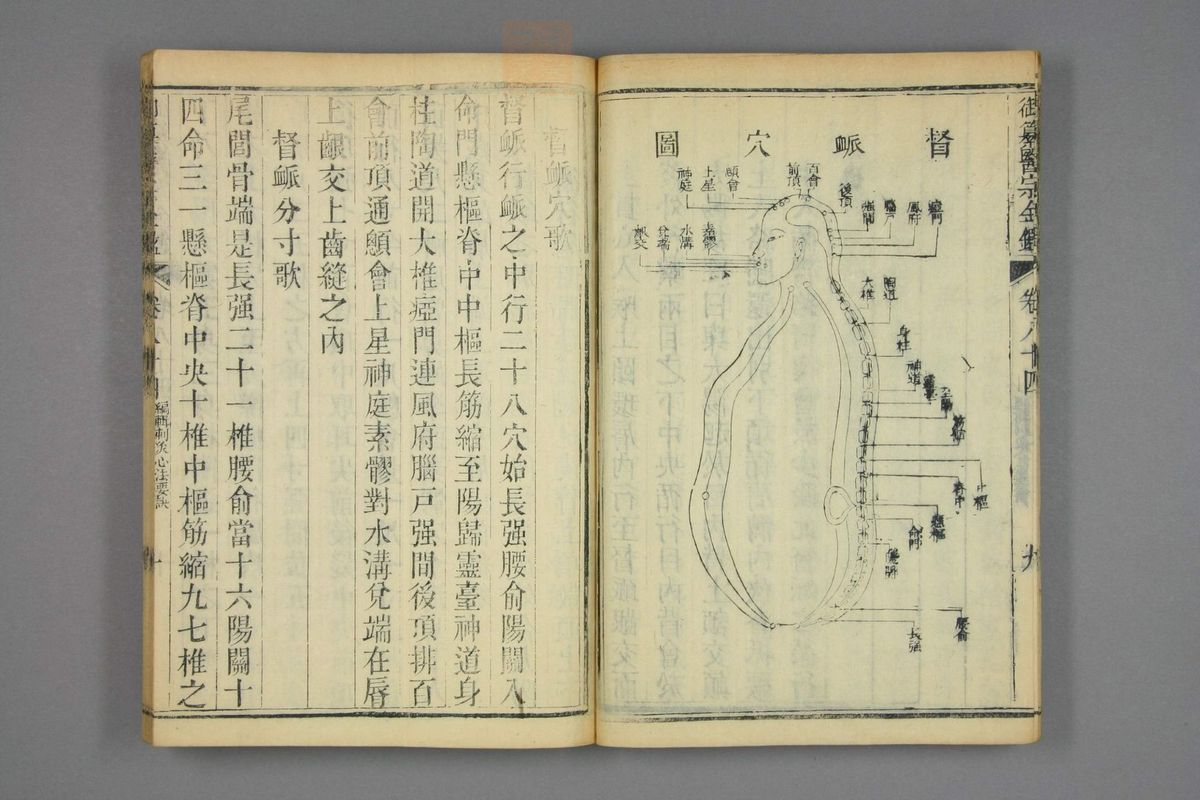 御纂醫宗金鑑
卷八十四
九
督脈穴圖
瘂門
風府
腦戶
強間
後頂
百會
前頂
顖會
上星
神庭
素髎
水溝
兌端
齦交
陶道
大椎
身柱
神道
靈臺
至陽
筋縮
中樞
脊中
懸樞
命門
陽關
腰俞
長強
督脈穴歌
督脈行脈之中行二十八穴始長强腰俞陽關入
命門懸樞脊中中樞長筋縮至陽歸靈臺神道身
柱陶道開大椎瘂門連風府腦戶强間後項排百
會前頂通顖會上星神庭素髎對水溝兌端在唇
上齦交上齒縫之內
督脈分寸歌
尾閭骨端是長强二十一椎腰俞當十六陽關十
四命三一懸樞脊中央十椎中樞筋縮九七椎之
卷八十四
編輯刺灸心法要訣